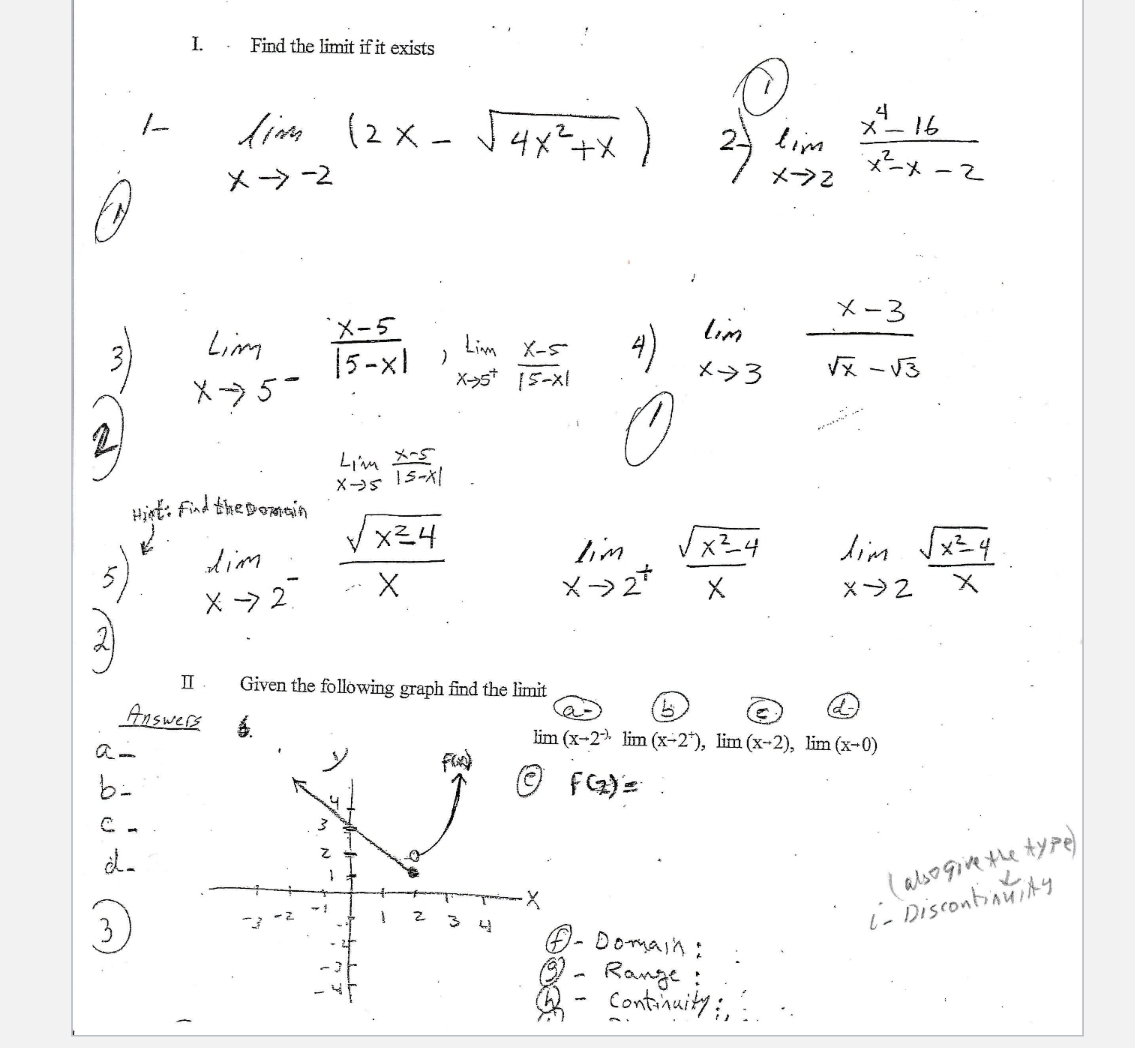 I. Find the limit if it exists
1- lim x→-2 (2x - √(4x²+x))
①
2) lim x→2 (x⁴-16)/(x²-x-2)
①
3) Lim x→5⁻ (x-5)/|5-x| , Lim x→5⁺ (x-5)/|5-x|
②
Lim x→5 (x-5)/|5-x|
4) lim x→3 (x-3)/(√x - √3)
①
Hint: Find the Domain
5) lim x→2⁻ √(x²-4)/x lim x→2⁺ √(x²-4)/x lim x→2 √(x²-4)/x
②
II. Given the following graph find the limit
(a-) (b) (c) (d-)
lim (x→2⁻), lim (x→2⁺), lim (x→2), lim (x→0)
Answers
6.
a-
b-
c-
d-
③
(e) F(2) =
y
F(x)
4
3
2
1
x
-3 -2 -1 1 2 3 4
-3
-4
(f) - Domain:
(g) - Range:
(h) - Continuity:
(also give the type)
i- Discontinuity